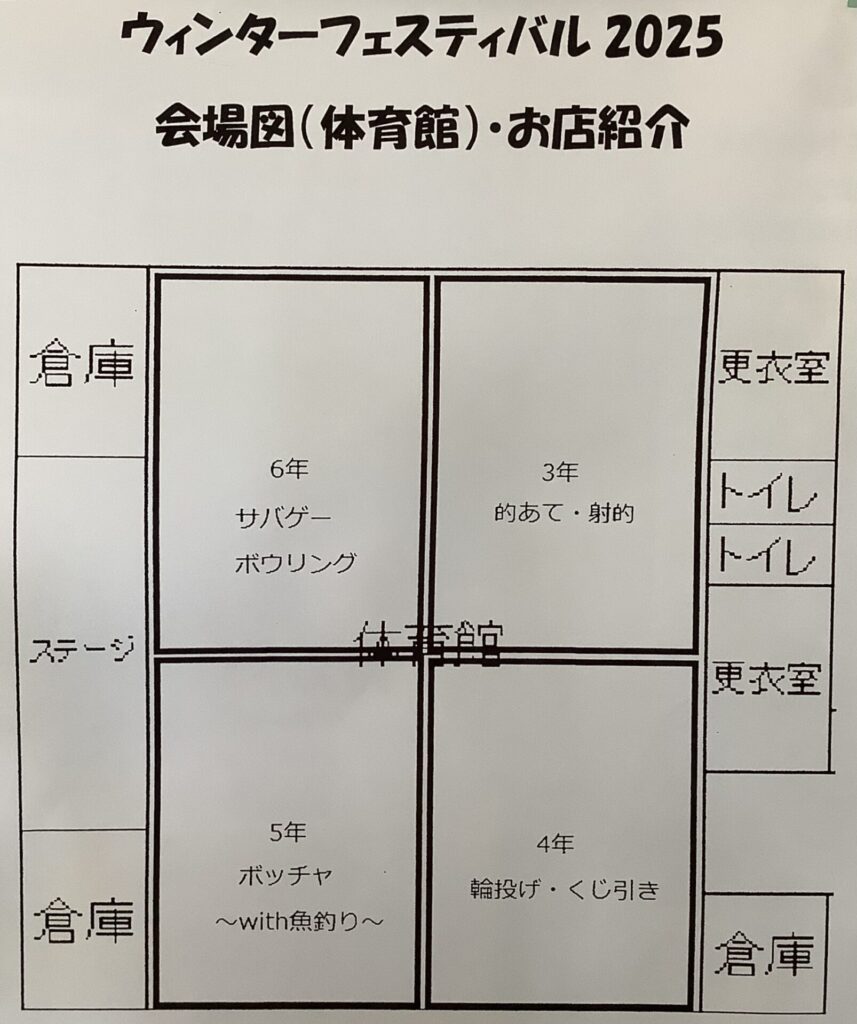 ウィンターフェスティバル 2025
会場図(体育館)・お店紹介
倉庫
ステージ
倉庫
6年
サバゲー
ボウリング
3年
的あて・射的
体育館
5年
ボッチャ
～with魚釣り～
4年
輪投げ・くじ引き
更衣室
トイレ
トイレ
更衣室
倉庫